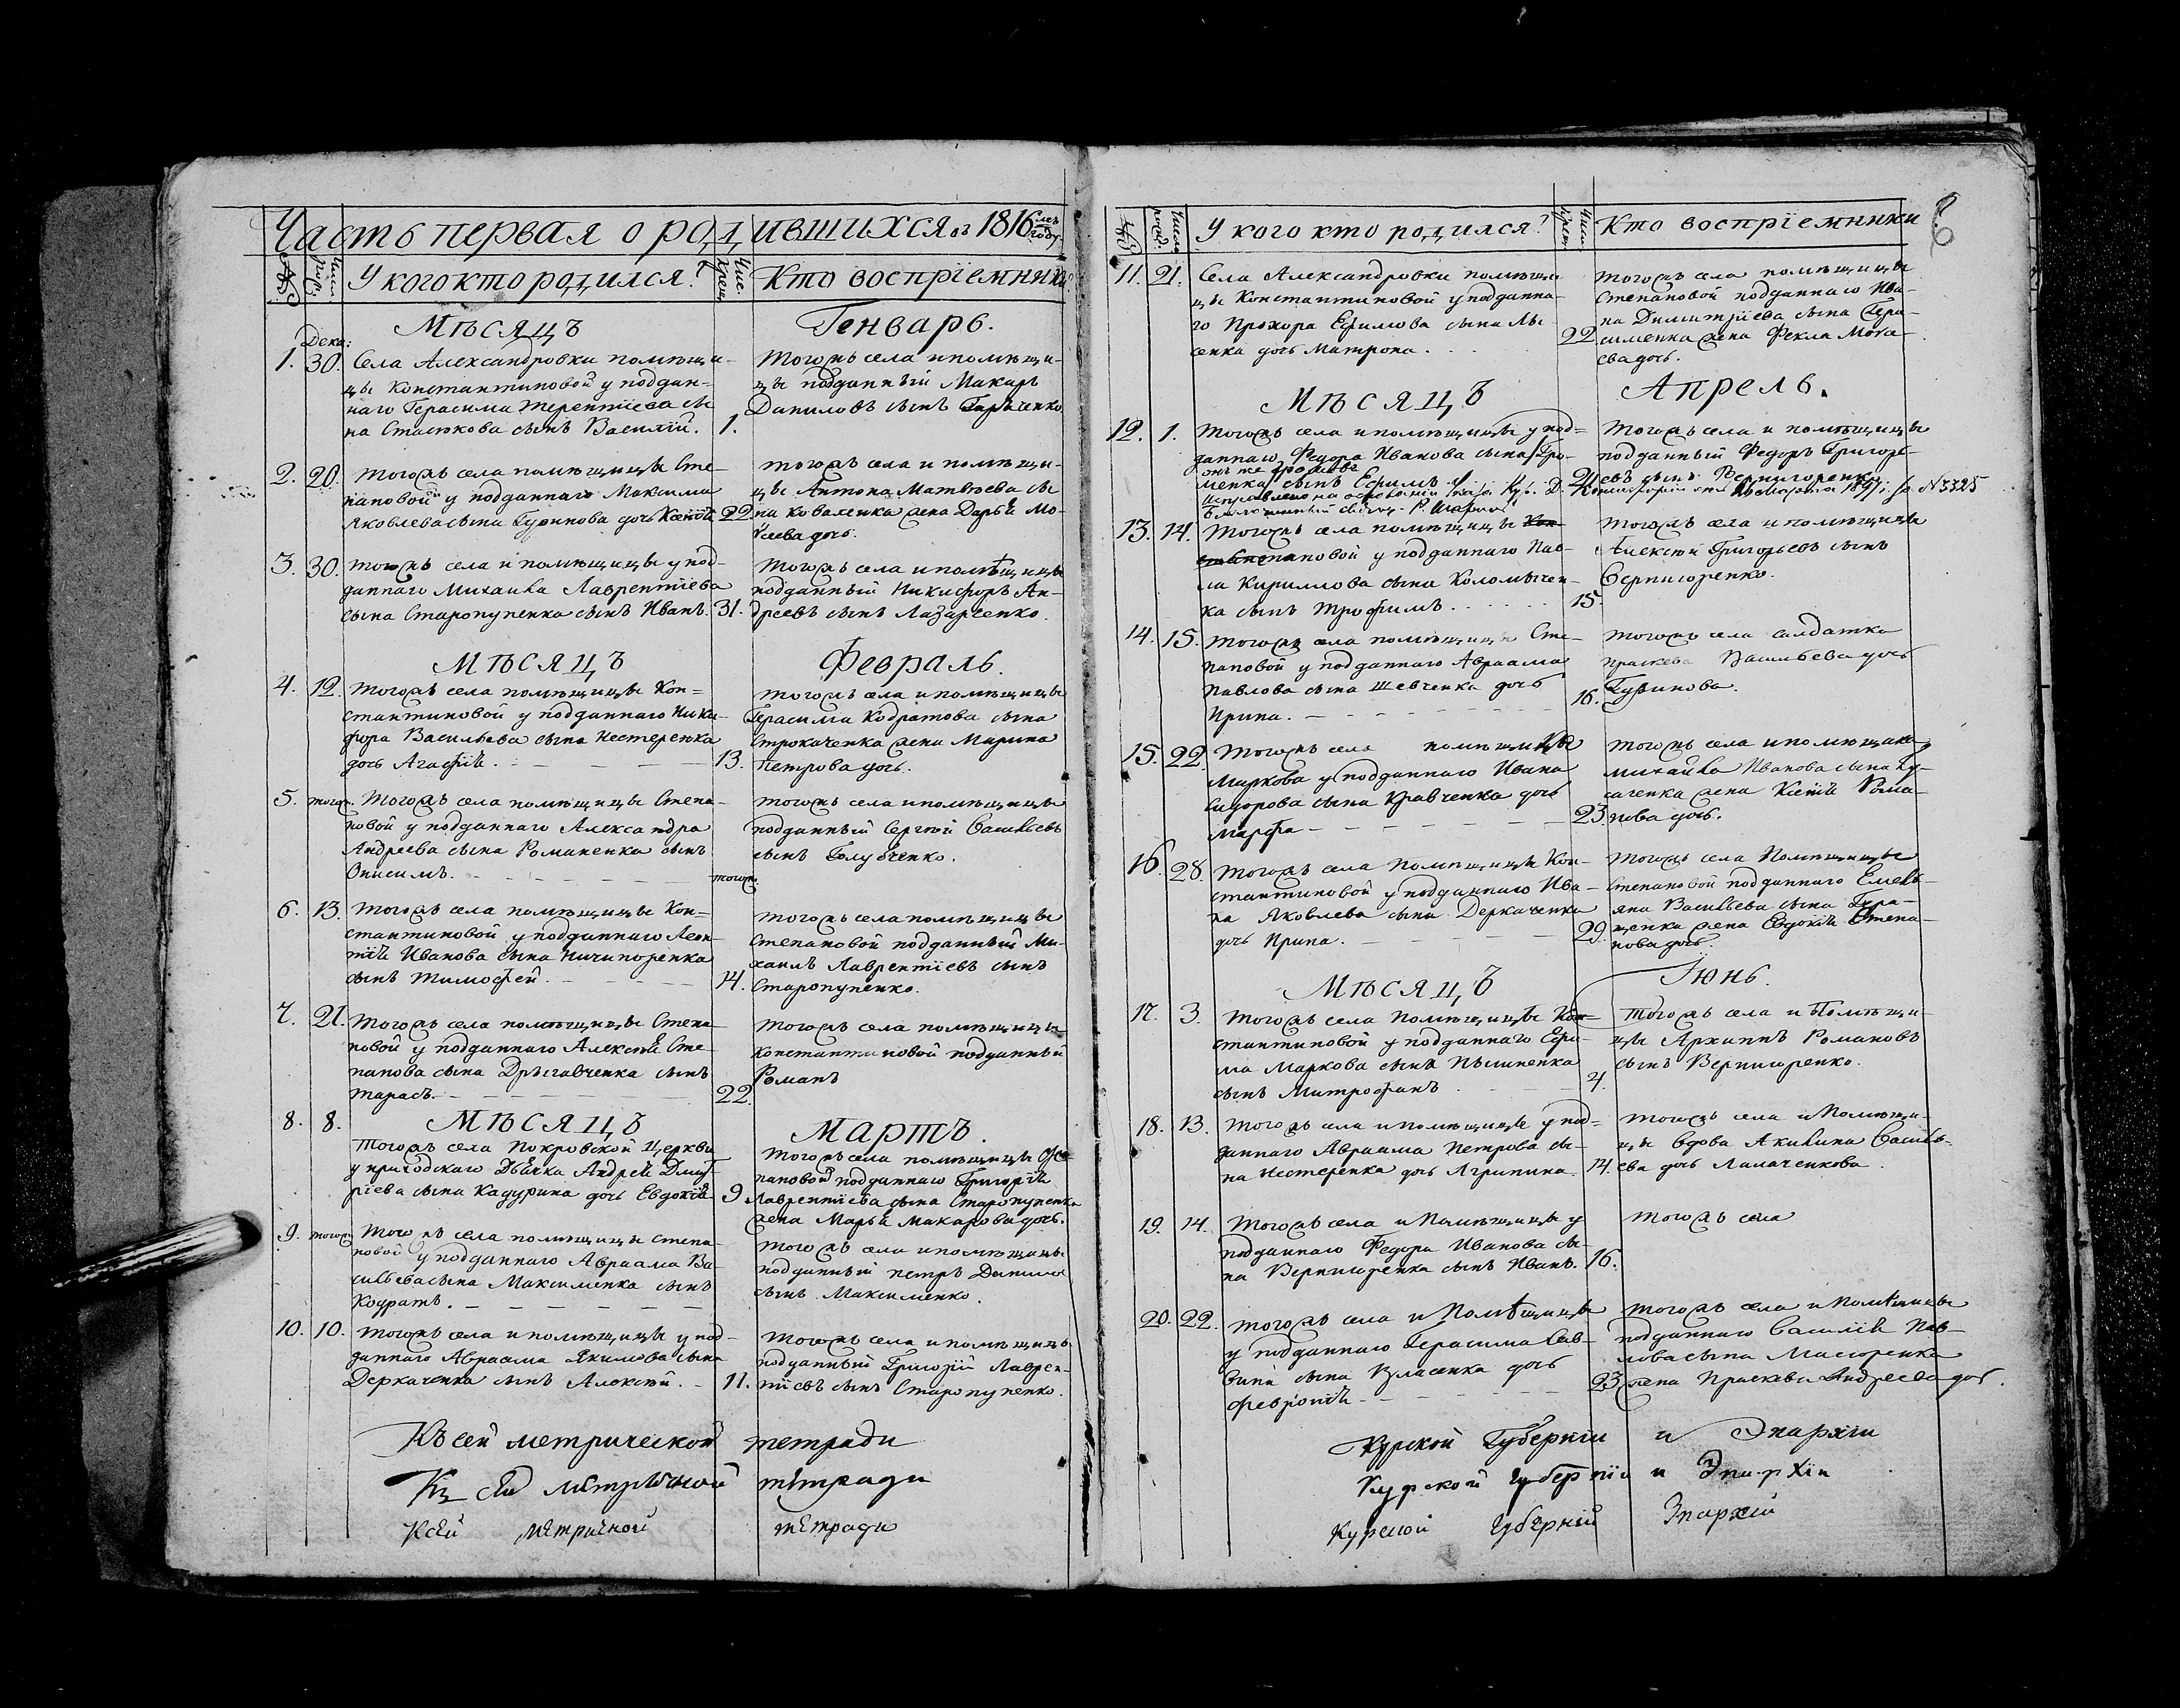 Часть первая о родившихся въ 1816 мъ году
№
Число рожд.
У кого кто родился?
Чис. крещ.
Кто воспріемники?
Мѣсяцъ Генварь.
Дека:
1. 30. Села Александровки помѣщи-
цы Константиновой у поддан-
наго Герасима Терентіева сы
на Стасюкова сынъ Василій. 1.
Тогожъ села и помѣщи-
цы подданный Макаръ
Даниловъ сынъ
2. 20. Тогожъ села помѣщицы Сте-
пановой у подданнаго Максима
Яковлева сына Гуринова дочь Ксенія 22.
тогожъ села и помѣщи-
цы Антона Матвѣева сы
на Коваленка жена Дарья Мо-
сеева дочь.
3. 30. тогожъ села и помѣщицы у под-
даннаго Михаила Лаврентіева
сына Старопупенка сынъ Иванъ. 31.
Тогожъ села и помѣщицы
подданный Никифоръ Ан-
дреевъ сынъ Лазарченко.
Мѣсяцъ Февраль.
4. 12. Тогожъ села помѣщицы Кон=
стантиновой у подданнаго Ники-
фора Васильева сына Нестеренка
дочь Агафія. 13.
тогожъ села и помѣщицы
Герасима Кодратова сына
Строкаченка жена Марина
Петрова дочь.
5. тогож. Тогожъ села помѣщицы Степа-
новой у подданнаго Александра
Андреева сына Романенка сынъ
Онисимъ. тогож.
тогожъ села и помѣщицы
подданный Сергѣй Васильевъ
сынъ Голубченко.
6. 13. Тогожъ села помѣщицы Кон=
стантиновой у подданнаго Леон-
тія Иванова сына Ничипоренка
сынъ Тимофей. 14.
тогожъ села помѣщицы
Степановой подданный Ми-
хаилъ Лаврентіевъ сынъ
Старопупенко.
7. 21. Тогожъ села помѣщицы Степа-
новой у подданнаго Алексѣя Сте-
панова сына сынъ
Тарасъ. 22.
тогожъ села помѣщицы
Константиновой подданный
Романъ
Мѣсяцъ Мартъ.
8. 8. Тогожъ села Покровской Церкви
у приходскаго Дьячка Андрея Дмит
ріева сына Кадурина дочь Евдокія 9
Тогожъ села помѣщицы Сте
пановой подданнаго Григорія
Лаврентіева сына Старопупенка
жена Марья Макарова дочь.
9. тогож. Тогожъ села помѣщицы Степа-
новой у подданнаго Авраама Ва-
сильева сына Максименка сынъ
Кодратъ.
тогожъ села и помѣщицы
подданный Петръ Данилов
сынъ Максименко.
10. 10. Тогожъ села и помѣщицы у под-
даннаго Авраама Якимова сына
Деркаченка сынъ Алексѣй. 11.
тогожъ села и помѣщицы
подданный Григорій Лаврен-
тіевъ сынъ Старопупенко.
Къ сей метрической тетради
Къ сей метричной тетради
К сей метричной тетради
№
Число рожд.
У кого кто родился?
Число крещ.
Кто воспріемники
11. 21. Села Александровки помѣщи
цы Константиновой у подданна-
го Прохора Ефимова сына Лы
сенка дочь Матрона. 22
тогожъ села помѣщицы
Степановой подданнаго Ива-
на Димитріева сына Гера-
сименка жена Фекла Мога-
ева дочь.
Мѣсяцъ Апрель.
12. 1. Тогожъ села и помѣщицы у под=
даннаго Федора Иванова сына Гро-
онъ же Громовъ
менка сынъ Ефимъ 2
Тогожъ села и помѣщицы
подданный Федоръ Григорь-
евъ сынъ Вернигоренко
Исправлено на основаніи Указа Кур. Д. Консисторіи отъ 1897 г. за №3325
13. 14. Тогожъ села помѣщицы Кон-
ста Степановой у подданнаго Пав-
ла Кириллова сына Коломычен-
ка сынъ Трофимъ 15.
тогожъ села и помѣщицы
Алексѣй Григорьевъ сынъ
Вернигоренко.
14. 15. Тогожъ села помѣщицы Сте-
пановой у подданнаго Авраама
Павлова сына Шевченка дочь
Ирина. 16.
тогожъ села салдатка
Праскева Васильева дочь
Гуринова.
15. 22. Тогожъ села помѣщицы
Маркова у подданнаго Ивана
Сидорова сына Кравченка дочь
Марфа 23
тогожъ села и помѣщика
Михайла Иванова сына Ку-
саченка жена Ксенія Рома-
нова дочь.
16. 28. тогожъ села Помѣщицы Кон-
стантиновой у подданнаго Ива-
на Яковлева сына Деркаченка
дочь Ирина. 29.
Тогожъ села Помѣщицы
Степановой подданнаго Емель-
яна Васильева сына Гера-
щенка жена Евдокія Степа-
нова дочь.
Мѣсяцъ Іюнь.
17. 3. Тогожъ села Помѣщицы Кон-
стантиновой у подданнаго Ери-
ма Маркова сына Пышненка
сынъ Митрофанъ 4.
Тогожъ села и Помѣщи-
цы Архиппъ Романовъ
сынъ Вернигоренко.
18. 13. Тогожъ села и помѣщицы у под=
даннаго Авраама Петрова сы-
на Нестеренка дочь Агрипина. 14.
тогожъ села и Помѣщи-
цы вдова Акилина Василь-
ева дочь Ламаченкова.
19. 14. Тогожъ села и Помѣщицы у
подданнаго Федора Иванова сы-
на Вернигоренка сынъ Иванъ. 16.
тогожъ села
20. 22. тогожъ села и Помѣщицы
у подданнаго Герасима Сав-
вина сына Власенка дочь
Февронія 23
тогожъ села и Помѣщицы
подданнаго Василія Пав-
лова сына Мисюренка
жена Праскева Андреева дочь.
Курской Губерніи и Эпархіи
Курской Губерніи и Эпархіи
Курской Губерніи Эпархіи